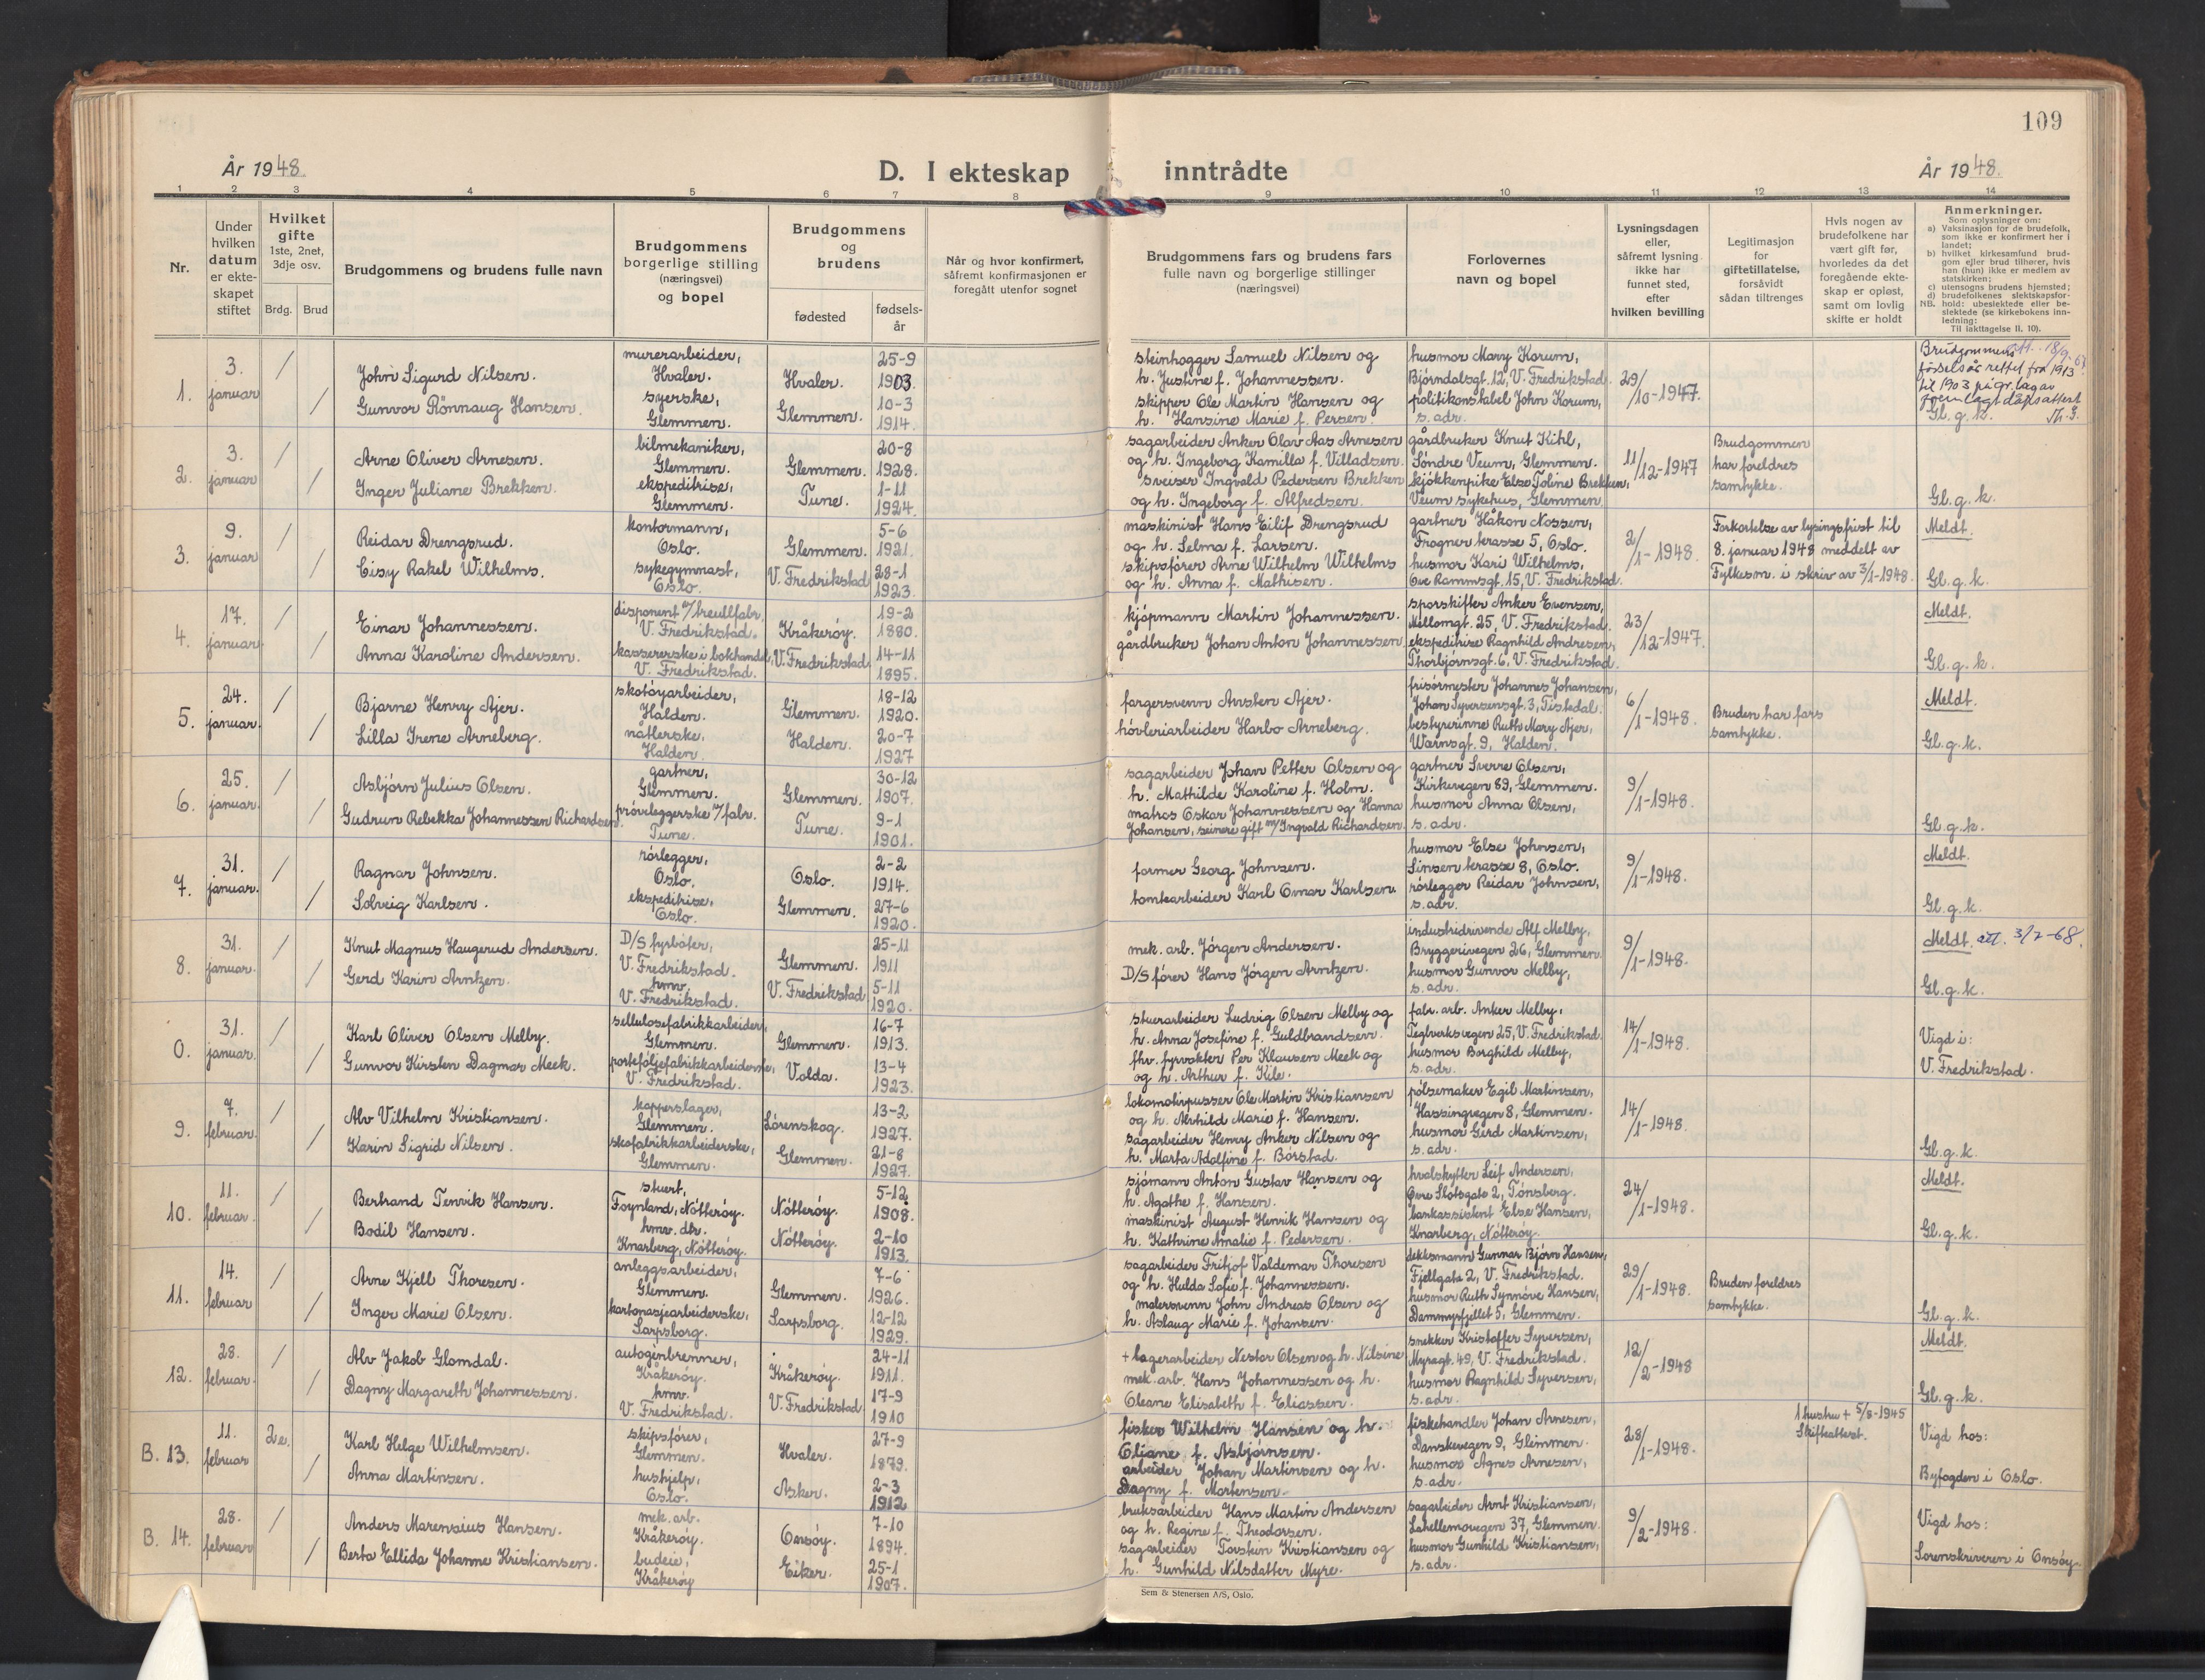 109
År 1948.
D. I ekteskap inntrådte
År 1948.
1 2 3 4 5 6 7 8 9 10 11 12 13 14
Nr.
Under hvilken datum er ekteskapet stiftet
Hvilket gifte 1ste, 2net, 3dje osv.
Brdg. Brud
Brudgommens og brudens fulle navn
Brudgommens borgerlige stilling (næringsvei) og bopel
Brudgommens og brudens
fødested
fødselsår
Når og hvor konfirmert, såfremt konfirmasjonen er foregått utenfor sognet
Brudgommens fars og brudens fars fulle navn og borgerlige stillinger (næringsvei)
Forlovernes navn og bopel
Lysningsdagen eller, såfremt lysning ikke har funnet sted, efter hvilken bevilling
Legitimasjon for giftetillatelse, forsåvidt sådan tiltrenges
Hvis nogen av brudefolkene har vært gift før, hvorledes da det foregående ekteskap er opløst, samt om lovlig skifte er holdt
Anmerkninger.
Som oplysninger om:
a) Vaksinasjon for de brudefolk, som ikke er konfirmert her i landet;
b) hvilket kirkesamfund brudgom eller brud tilhører, hvis han (hun) ikke er medlem av statskirken;
c) utensogns brudens hjemsted;
d) brudefolkenes slektskapsforhold: ubeslektede eller beslektede (se kirkebokens innledning:
NB. Til iakttagelse II. 10).
1. 3. januar / /
John Sigurd Nilsen.
Gunvor Rönnaug Hansen.
murerarbeider, Hvaler.
syerske, Glemmen.
Hvaler. 25-9 1903.
Glemmen. 10-3 1914.
steinhogger Samuel Nilsen og
h. Justine f. Johannessen.
skipper Ole Martin Hansen og
h. Hansine Marie f. Persen.
husmor Mary Korum,
Björndalsgt. 12, V. Fredrikstad.
politikonstabel John Korum,
s. adr.
29/10-1947.
Brudgommens
födselsår rettet fra 1913
til 1903 på gr.lag av
freml­agt dåpsattest
Gl. g. k. Th. G.
2. 3. januar / /
Arne Oliver Arnesen.
Inger Juliane Brekken.
bilmekaniker, Glemmen.
ekspeditrise, Glemmen.
Glemmen. 20-8 1928.
Tune. 1-11 1924.
sagarbeider Anker Olav Aas Arnesen
og h. Ingeborg Kamilla f. Villadsen.
sveiser Ingvald Pedersen Brekken
og h. Ingeborg f. Alfredsen.
gårdbruker Knut Kihl,
Söndre Veum, Glemmen.
kjökkenpike Else Toline Brekken,
Veum sykehus, Glemmen.
11/12-1947
Brudgommen
har foreldres
samtykke.
Gl. g. k.
3. 9. januar / /
Reidar Drengsrud.
Eisy Rakel Wilhelms.
kontormann, Oslo.
sykegymnast, Oslo.
Glemmen. 5-6 1921.
V. Fredrikstad 28-1 1923.
maskinist Hans Eilif Drengsrud
og h. Selma f. Larsen.
skipsförer Arne Wilhelm Wilhelms
og h. Anna f. Mathisen.
gartner Håkon Nossen,
Frogner terasse 5, Oslo.
husmor Kari Wilhelms,
Ove Rammsgt. 15, V. Fredrikstad.
2/1-1948.
Forkortelse av lysingsfrist til
8. januar 1948 meddelt av
Fylkesm. i skriv av 3/1-1948.
Meldt.
Gl. g. k.
4. 17. januar / /
Einar Johannessen.
Anna Karoline Andersen.
disponent v/treullfabr. V. Fredrikstad.
kassererske i bokhandel, V. Fredrikstad.
Kråkeröy. 19-2 1880.
V. Fredrikstad. 14-11 1895.
kjöpmann Martin Johannessen.
gårdbruker Johan Anton Johannessen
sporskifter Anker Evensen,
Mellomgt. 25, V. Fredrikstad.
ekspeditrise Ragnhild Andresen,
Thorbjörnsgt. 6, V. Fredrikstad.
23/12-1947.
Meldt.
Gl. g. k.
5. 24. januar. / /
Bjarne Henry Ajer.
Lilla Irene Arneberg.
skotöyarbeider, Halden.
nåtlerske, Halden.
Glemmen. 18-12 1920.
Halden. 20-7 1927
fargersvenn Ansten Ajer.
hövleriarbeider Harbo Arneberg.
frisörmester Johannes Johansen,
Johan Syversensgt. 3, Tistedal.
bestyrerinne Ruth Mary Ajer,
Warnsgt. 9, Halden.
6/1-1948.
Bruden har fars
samtykke.
Meldt.
Gl. g. k.
6. 25. januar. / /
Asbjörn Julius Olsen.
Gudrun Rebekka Johannessen Richardsen.
gartner, Glemmen.
pröveleggerske v/fabr. Tune.
Glemmen. 30-12 1907.
Tune. 9-1 1901.
sagarbeider Johan Petter Olsen og
h. Mathilde Karoline f. Holm.
matros Oskar Johannessen og Hanna
Johansen, seinere gift m/Ingvald Richardsen.
gartner Sverre Olsen,
Kirkevegen 89, Glemmen.
husmor Anna Olsen,
s. adr.
9/1-1948.
Gl. g. k.
7. 31. januar. / /
Ragnar Johnsen.
Solveig Karlsen.
rörlegger, Oslo.
ekspeditrise, Oslo.
Oslo. 2-2 1914.
Glemmen. 27-6 1920.
former Georg Johnsen.
tomtearbeider Karl Omar Karlsen.
husmor Else Johnsen,
Sinsen terasse 8, Oslo.
rörlegger Reidar Johnsen,
s. adr.
9/1-1948.
Meldt.
Gl. g. k.
8. 31. januar. / /
Knut Magnus Haugerud Andersen.
Gerd Karin Arntzen.
D/S fyrböter, V. Fredrikstad.
hmv. V. Fredrikstad.
Glemmen. 25-11 1911
V. Fredrikstad 5-11 1920.
mek. arb. Jörgen Andersen.
D/S förer Hans Jörgen Arntzen.
industridrivende Alf Melby,
Bryggerivegen 26, Glemmen.
husmor Gunvor Melby,
s. adr.
9/1-1948.
Meldt. att. 3/7-68.
Gl. g. k.
0. 31. januar. / /
Karl Oliver Olsen Melby.
Gunvor Kirsten Dagmar Meek.
sellulosefabrikkarbeider, Glemmen.
porteföljefabrikkarbeiderske, V. Fredrikstad.
Glemmen. 16-7 1913.
Volda. 13-4 1923.
stuerarbeider Ludvig Olsen Melby og
h. Anna Josefine f. Guldbrandsen.
fhv. fyrvokter Per Klausen Meek og
og h. Arthur f. Kile.
fabr. arb. Anker Melby,
Teglverksvegen 25, V. Fredrikstad.
husmor Borghild Melby,
s. adr.
14/1-1948.
Vigd i:
V. Fredrikstad.
9. 7. februar. / /
Alv Vilhelm Kristiansen.
Karin Sigrid Nilsen.
kopperslager, Glemmen.
skofabrikkarbeiderske, Glemmen.
Lörenskog. 13-2 1927.
Glemmen. 21-8 1927.
lokomotivpusser Ole Martin Kristiansen
og h. Arthild Marie f. Hansen.
sagarbeider Henry Anker Nilsen og
h. Marta Adolfine f. Börstad.
pölsemaker Egil Martinsen,
Hassingvegen 8, Glemmen.
husmor Gerd Martinsen,
s. adr.
14/1-1948.
Gl. g. k.
10. 11. februar. / /
Bertrand Tenvik Hansen.
Bodil Hansen.
stuert, Foynland, Nötteröy.
hmv. dr. Knarberg, Nötteröy.
Nötteröy. 5-12 1908.
Nötteröy. 2-10 1913.
sjömann Anton Gustav Hansen og
h. Agathe f. Hansen.
maskinist August Henrik Hansen og
h. Kathrine Amalie f. Pedersen.
hvalskytter Leif Andersen,
Övre Slotsgate 2, Tönsberg.
bankassistent Else Hansen,
Knarberg, Nötteröy.
24/1-1948.
Meldt.
Gl. g. k.
11. 14. februar / /
Arne Kjell Thoresen.
Inger Marie Olsen.
anleggsarbeider, Glemmen.
kartonasjearbeiderske, Sarpsborg.
Glemmen. 7-6 1926.
Sarpsborg. 12-12 1929.
sagarbeider Fritjof Valdemar Thoresen
og h. Hulda Sofie f. Johannessen.
malersvenn John Andreas Olsen og
h. Aslaug Marie f. Johansen.
dekksmann Gunnar Björn Hansen,
Fjellgata 2, V. Fredrikstad.
husmor Ruth Synnöve Hansen,
Dammysfjellet 5, Glemmen.
29/1-1948.
Bruden foreldres
samtykke.
Gl. g. k.
12. 28. februar. / /
Alv Jakob Glomdal.
Dagny Margareth Johannessen.
autogenbrenner, Kråkeröy.
hmv. V. Fredrikstad.
Kråkeröy. 24-11 1911.
V. Fredrikstad 17-9 1910
+ lagerarbeider Nestor Olsen og h. Nilsine
mek. arb. Hans Johannessen og h.
Oleane Elisabeth f. Eliassen.
snekker Kristoffer Syversen,
Myragt. 49, V. Fredrikstad.
husmor Ragnhild Syversen,
s. adr.
12/2-1948
Meldt.
Gl. g. k.
B. 13. 11. februar 2e. /
Karl Helge Wilhelmsen.
Anna Martinsen.
skipsförer, Glemmen.
hushjelp, Oslo.
Hvaler. 27-9 1879.
Asker. 2-3 1912
fisker Wilhelm Hansen og h.
Oliane f. Asbjörnsen.
arbeider Johan Martinsen og h.
Dagny f. Mortensen.
fiskehandler Johan Arnesen,
Danskevegen 9, Glemmen.
husmor Agnes Arnesen,
s. adr.
28/1-1948.
1 hustru + 5/8-1945
Skifteattest.
Vigd hos:
Byfogden i Oslo.
B. 14. 28. februar / /
Anders Marensius Hansen.
Berta Ellida Johanne Kristiansen.
mek. arb. Kråkeröy.
budeie, Kråkeröy
Onsöy. 7-10 1894.
Eiker. 25-1 1907.
bruksarbeider Hans Martin Andersen
og h. Regine f. Theodorsen.
sagarbeider Torstein Kristiansen og
h. Gunhild Nilsdatter Myre.
sagarbeider Arnt Kristiansen,
Lahellemovegen 37, Glemmen.
husmor Gunhild Kristiansen,
s. adr.
9/2-1948.
Vigd hos:
Sorenskriveren i Onsöy.
Sem & Stenersen A/S, Oslo.